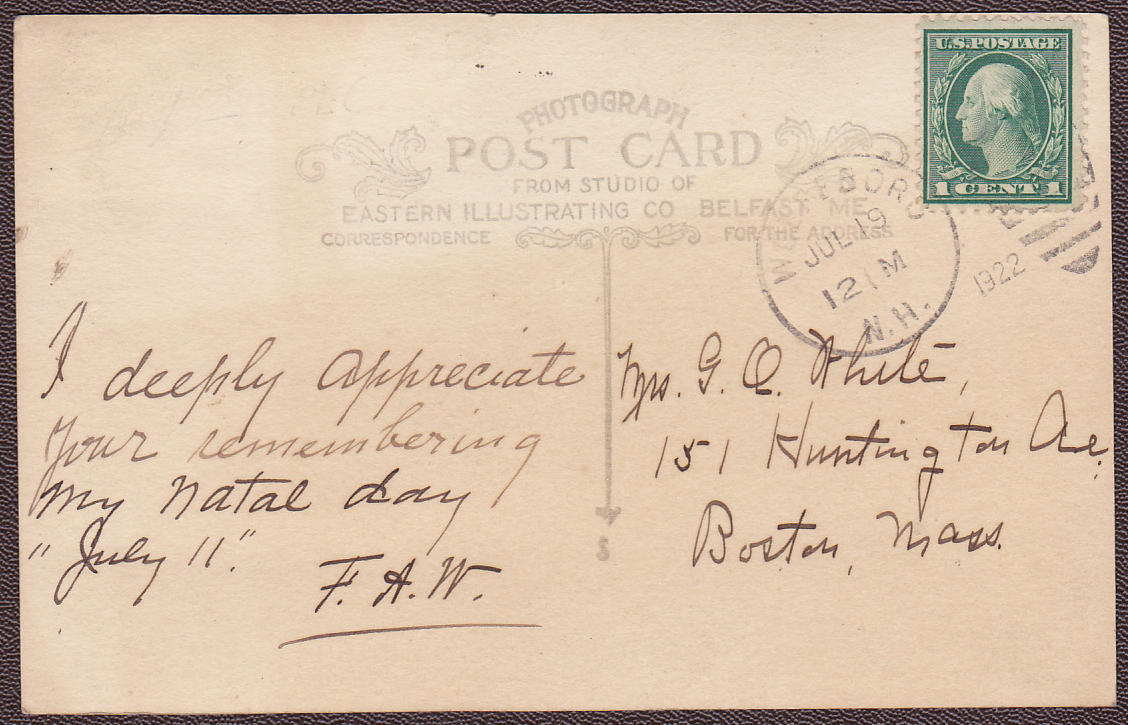 U.S. POSTAGE
1 CENT 1
PHOTOGRAPH
POST CARD
FROM STUDIO OF
EASTERN ILLUSTRATING CO BELFAST ME
CORRESPONDENCE
FOR THE ADDRESS
JUL 19
12 M
N.H.
1922
I deeply appreciate
your remembering
my natal day
"July 11".
F. A. W.
Mrs. G. Q. White,
151 Huntington Ave.
Boston, Mass.